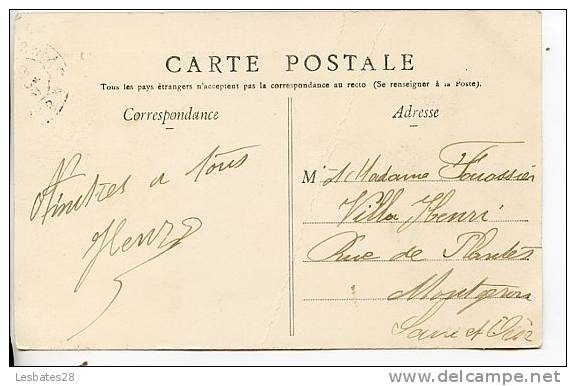 CARTE POSTALE
Tous les pays étrangers n'acceptent pas la correspondance au recto (Se renseigner à la Poste).
Correspondance
Adresse
Amitiés a tous
Henri
M et Madame
Villa Henri
Rue de
Montgeron
Seine et Oise
Lesbates28
delcampe.net